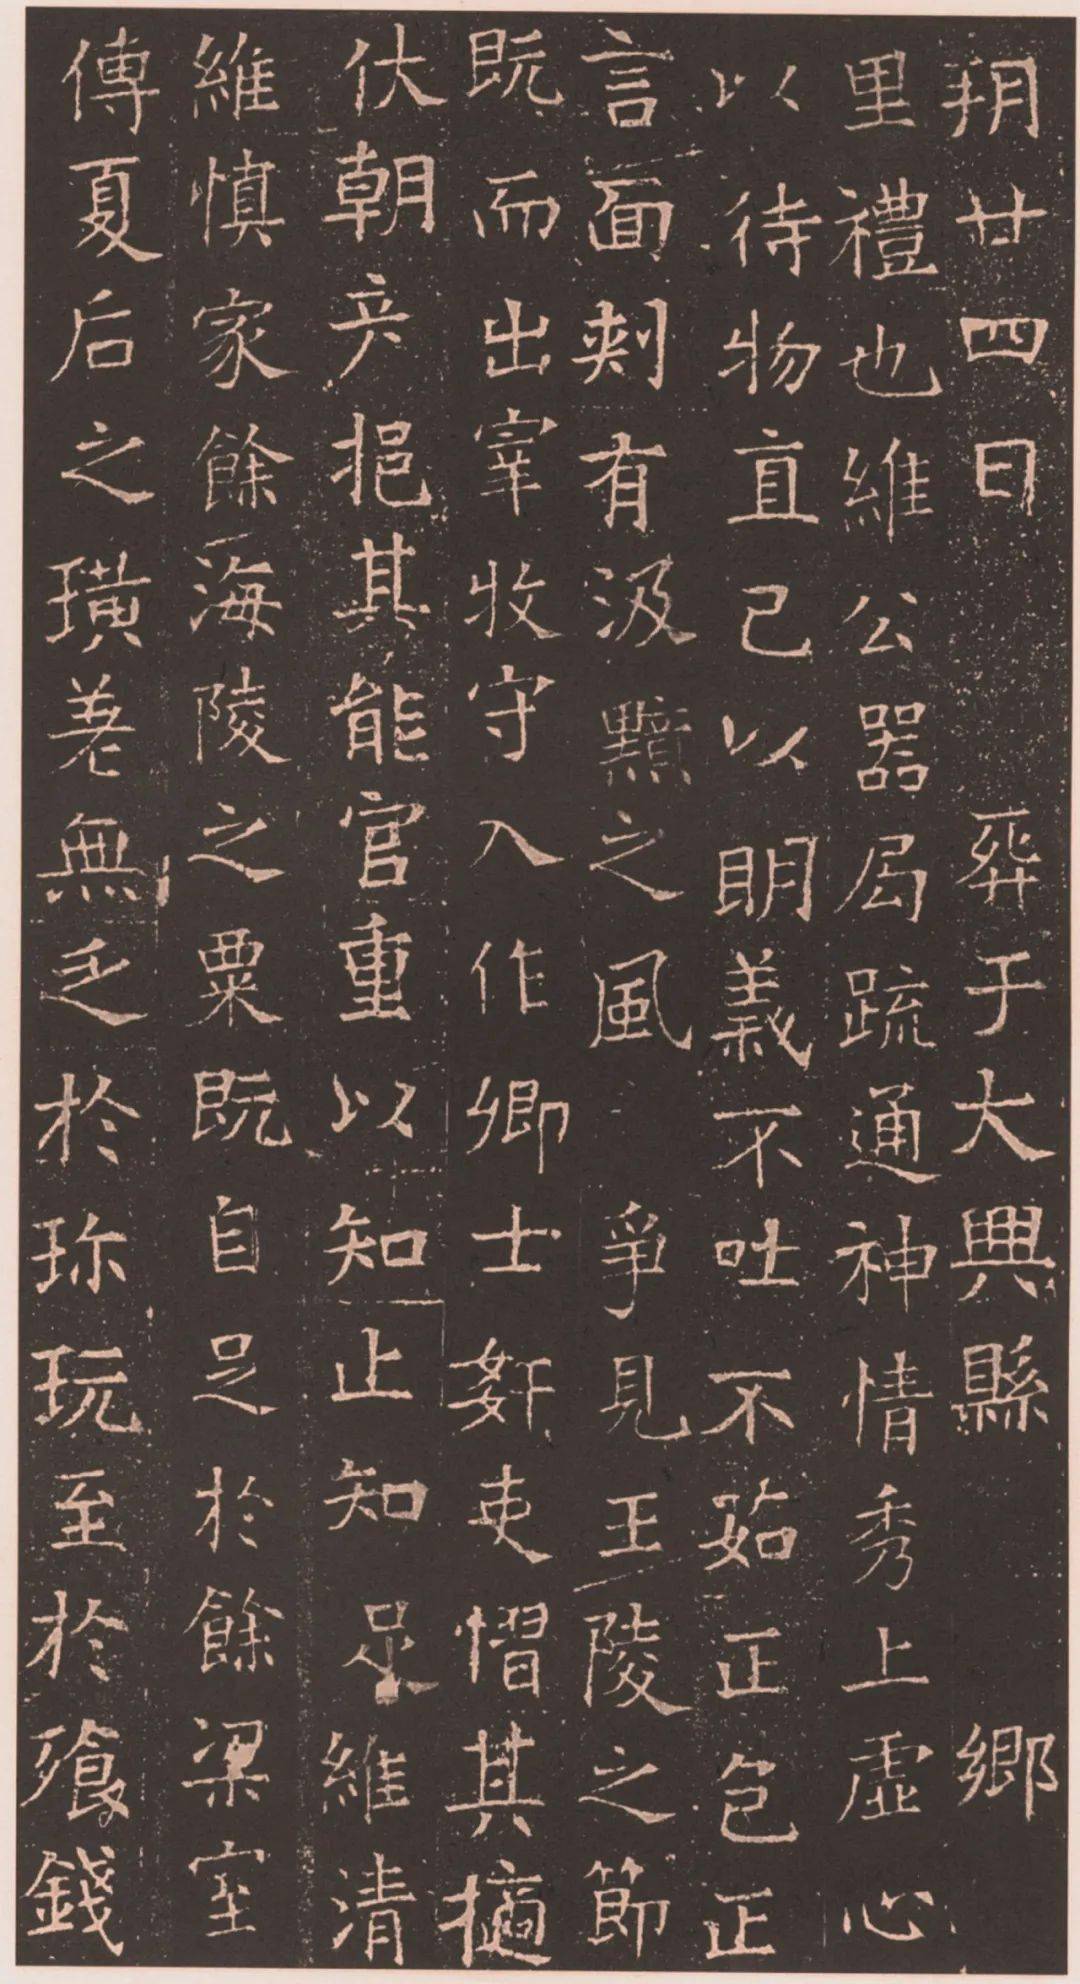 朔廿四日 葬于大興縣 鄉
里禮也維公器局疏通神情秀上虛心
以待物直己以明義不吐不茹正色正
言面刺有汲黯之風 爭見王陵之節
既而出宰牧守入作卿士姧吏慴其擿
伏朝彥挹其能官重以知止知足維清
維慎家餘海陵之粟既自足於餘梁室
傳夏后之璜差無乏於珎玩至於飡錢